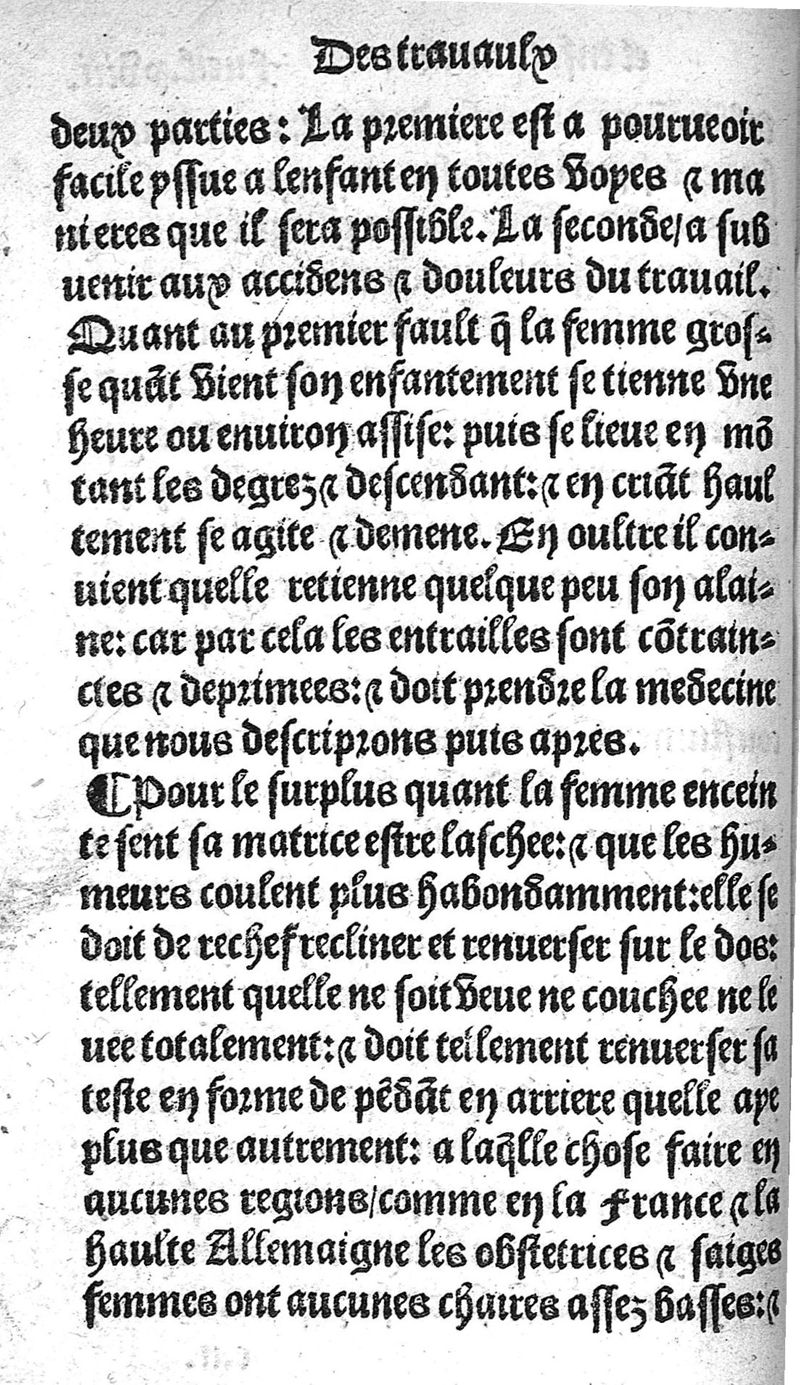 Des trauaulx
deux parties: La premiere est a pourueoir
facile yssue a lenfant en toutes voyes ⁊ ma
nieres que il sera possible. La seconde/a sub
uenir aux accidens ⁊ douleurs du trauail.
Quant au premier fault q̃ la femme gros-
se quãt vient son enfantement se tienne vne
heure ou enuiron assise: puis se lieue en mõ
tant les degrez ⁊ descendant: ⁊ en criãt haul
tement se agite ⁊ demene. En oultre il con-
uient quelle retienne quelque peu son alai-
ne: car par cela les entrailles sont cõtrain-
ctes ⁊ deprimees: ⁊ doit prendre la medecine
que nous descriprons puis apres.
¶ Pour le surplus quant la femme encein
te sent sa matrice estre laschee: ⁊ que les hu-
meurs coulent plus habondamment: elle se
doit de rechef recliner et renuerser sur le dos:
tellement quelle ne soit veue ne couchee ne le
uee totalement: ⁊ doit tellement renuerser sa
teste en forme de pẽdãt en arriere quelle aye
plus que autrement: a laq̃lle chose faire en
aucunes regions/comme en la France ⁊ la
haulte Allemaigne les obstetrices ⁊ saiges
femmes ont aucunes chaires assez basses: ⁊